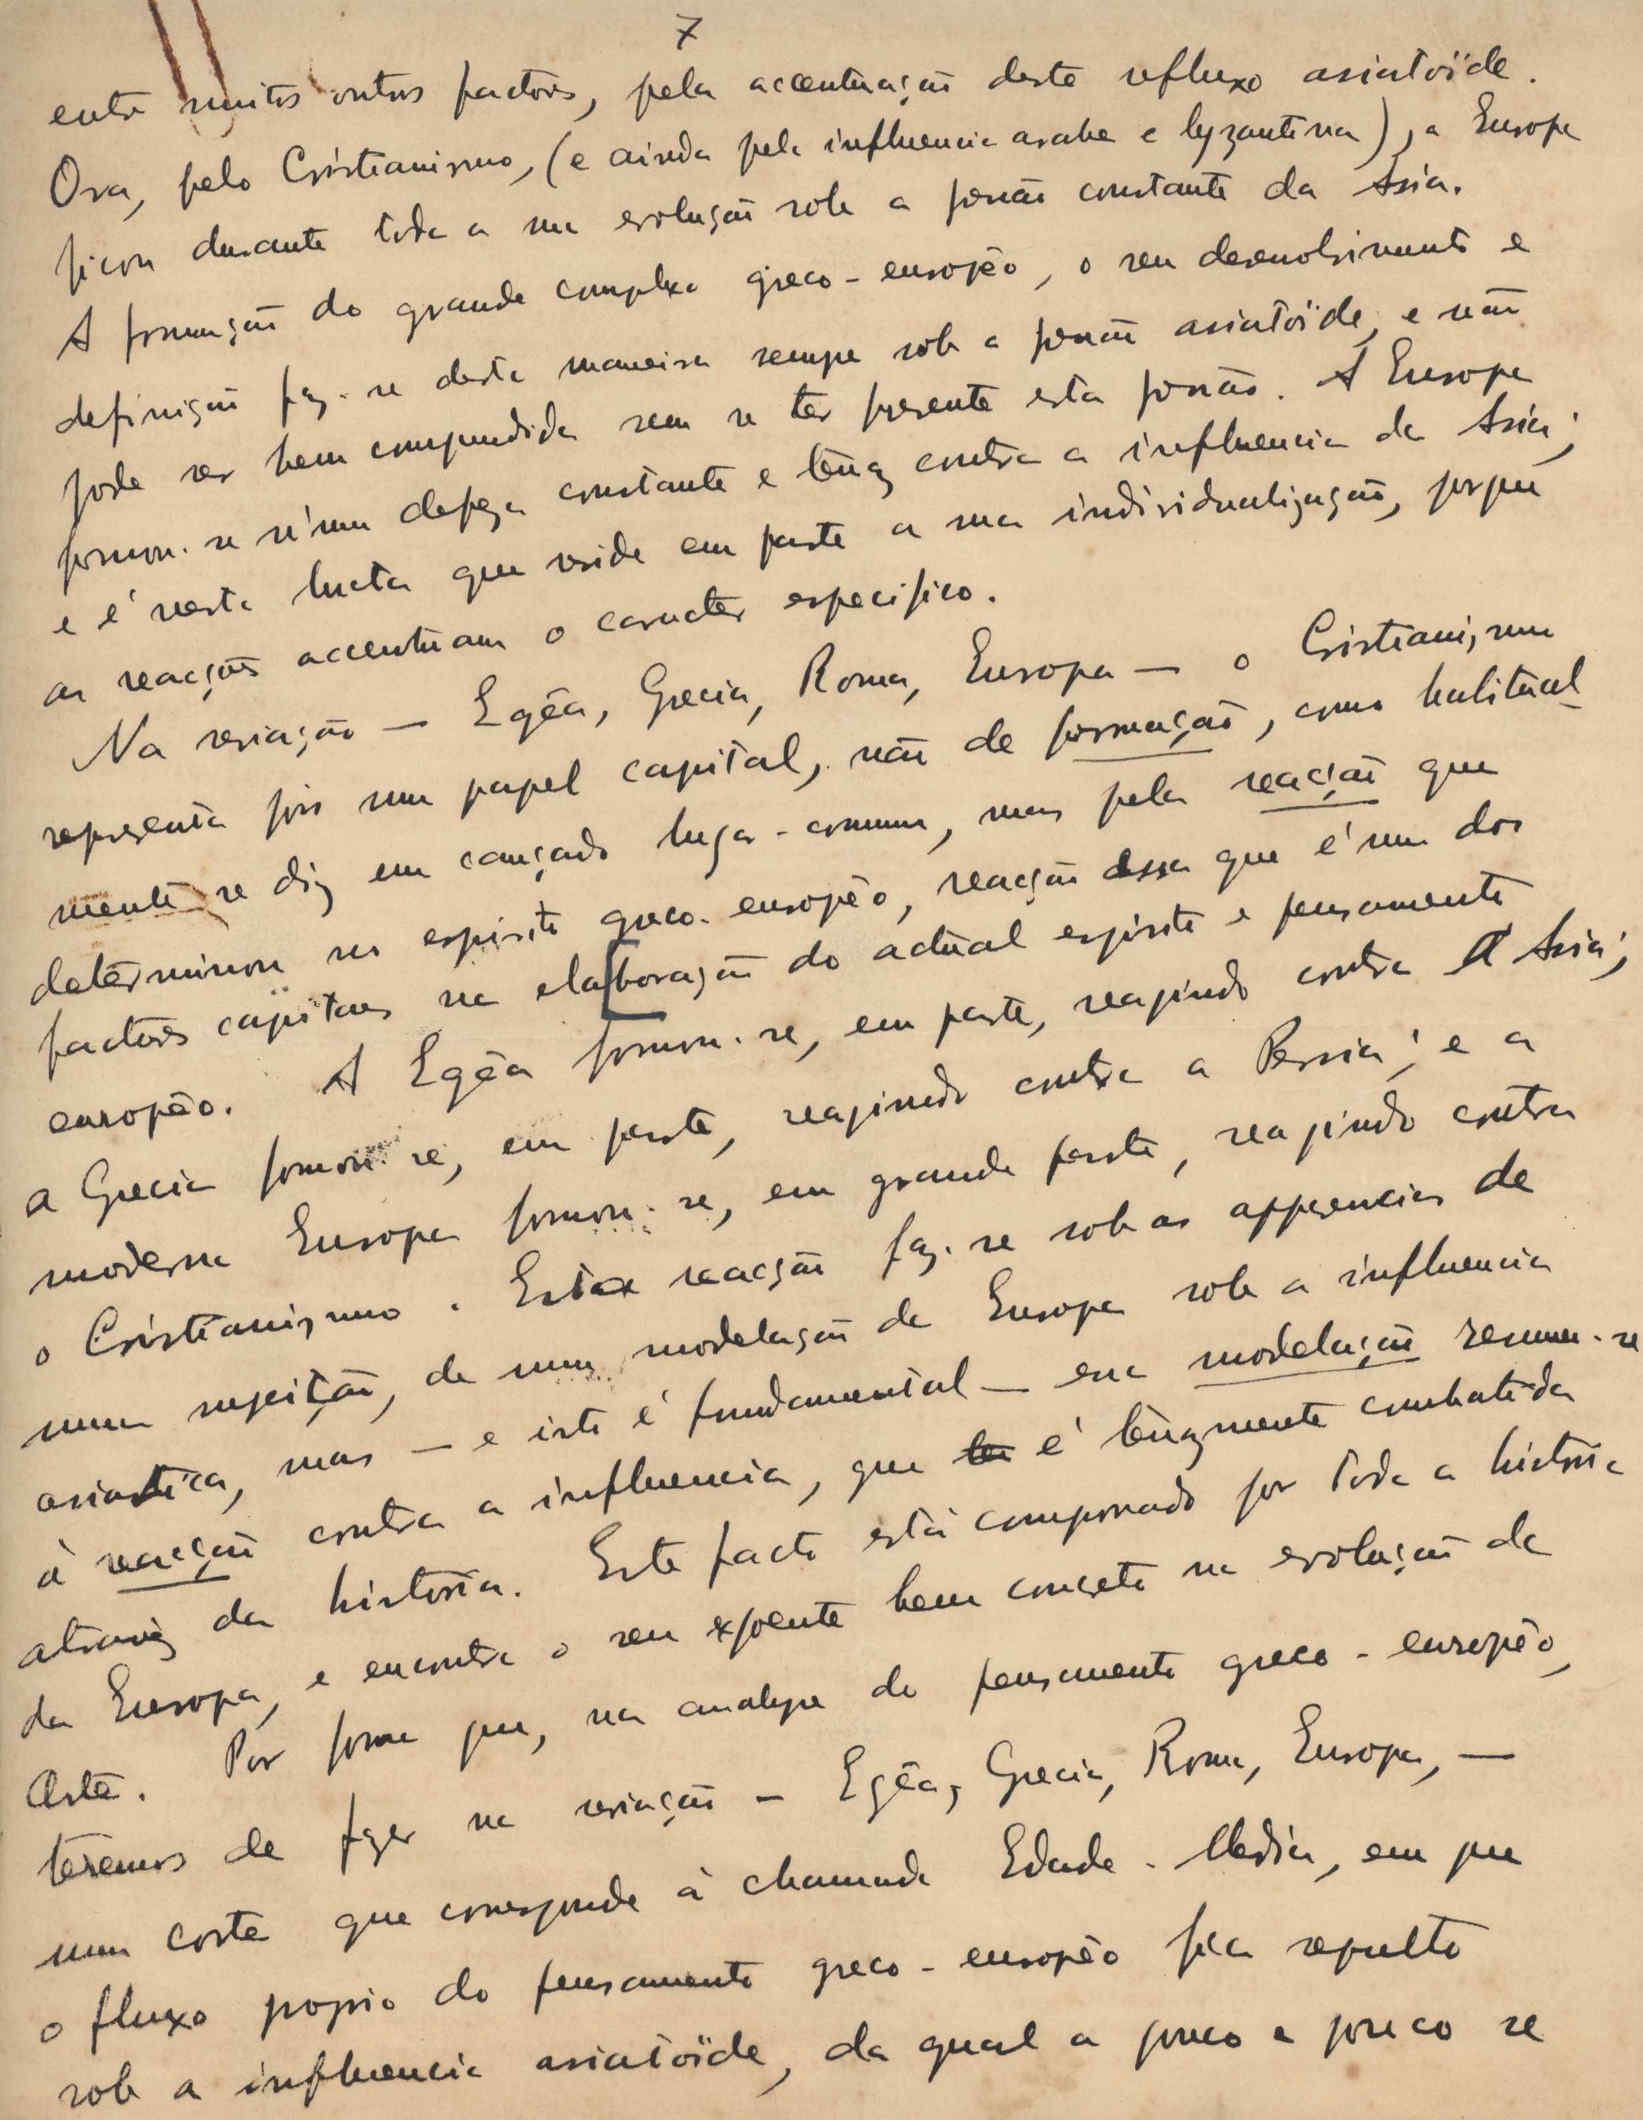 7
entre muitos outros factores, pela accentuação deste refluxo asiatoïde.
Ora, pelo Cristianismo, (e ainda pela influencia arabe e byzantina), a Europa
ficou durante toda a sua evolução sob a pressão constante da Asia.
A formação do grande complexo greco-europêo, o seu desenvolvimento e
definição faz-se desta maneira sempre sob a pressão asiatoïde, e não
pode ser bem comprendida sem se ter presente esta pressão. A Europa
formou-se n'uma defeza constante e tenaz contra a influencia da Asia;
e é nesta lucta que reside em parte a sua individualização, porque
as reacções accentuam o caracter especifico.
Na variação — Egêa, Grecia, Roma, Europa — o Cristianismo
representa pois um papel capital, não de formação, como habitual-
mente se diz em cançado lugar-comum, mas pela reacção que
determinou no espirito greco-europêo, reacção essa que é um dos
factores capitaes na elaboração do actual espirito e pensamento
europêo. A Egêa formou-se, em parte, reagindo contra a Asia;
a Grecia formou-se, em parte, reagindo contra a Persia; e a
moderna Europa formou-se, em grande parte, reagindo contra
o Cristianismo. Esta reacção faz-se sob as apparencias de
uma sujeição, de uma modelação da Europa sob a influencia
asiatica, mas — e isto é fundamental — essa modelação resume-se
à reacção contra a influencia, que é tenazmente combatida
atravez da historia. Este facto está comprovado por toda a historia
da Europa, e encontra o seu expoente bem concreto na evolução da
Arte. Por forma que, na analyse do pensamento greco-europêo,
teremos de fazer na variação — Egêa, Grecia, Roma, Europa, —
um corte que corresponde à chamada Edade-Media, em que
o fluxo proprio do pensamento greco-europêo fica sepulto
sob a influencia asiatoïde, da qual a pouco e pouco se